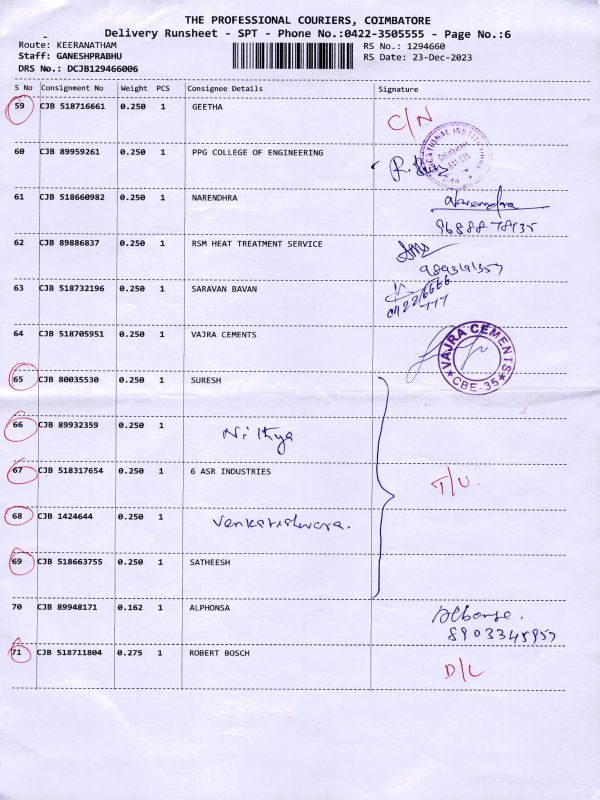 THE PROFESSIONAL COURIERS, COIMBATORE
Delivery Runsheet - SPT - Phone No.:0422-3505555 - Page No.:6
Route: KEERANATHAM RS No.: 1294660
Staff: GANESHPRABHU RS Date: 23-Dec-2023
DRS No.: DCJB129466006
S No Consignment No Weight PCS Consignee Details Signature
59 CJB 518716661 0.250 1 GEETHA C/N
60 CJB 89959261 0.250 1 PPG COLLEGE OF ENGINEERING
61 CJB 518660982 0.250 1 NARENDHRA Narendhra
96888 78135
62 CJB 89886837 0.250 1 RSM HEAT TREATMENT SERVICE
9893191357
63 CJB 518732196 0.250 1 SARAVAN BAVAN
0422 6666
777
64 CJB 518705951 0.250 1 VAJRA CEMENTS VAJRA CEMENTS CBE-35
65 CJB 80035530 0.250 1 SURESH
66 CJB 89932359 0.250 1 Nithya
67 CJB 518317654 0.250 1 6 ASR INDUSTRIES T/U.
68 CJB 1424644 0.250 1 Venkatishwara.
69 CJB 518663755 0.250 1 SATHEESH
70 CJB 89948171 0.162 1 ALPHONSA
8903345957
71 CJB 518711804 0.275 1 ROBERT BOSCH D/L